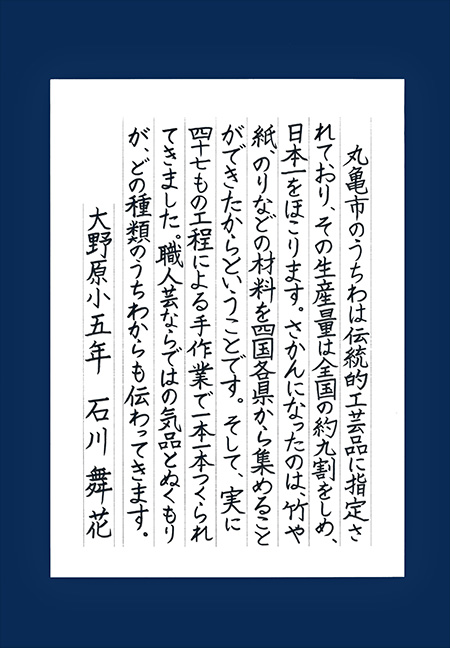 丸亀市のうちわは伝統的工芸品に指定さ
れており、その生産量は全国の約九割をしめ、
日本一をほこります。さかんになったのは、竹や
紙、のりなどの材料を四国各県から集めること
ができたからということです。そして、実に
四十七もの工程による手作業で一本一本つくられ
てきました。職人芸ならではの気品とぬくもり
が、どの種類のうちわからも伝わってきます。
大野原小五年 石川舞花